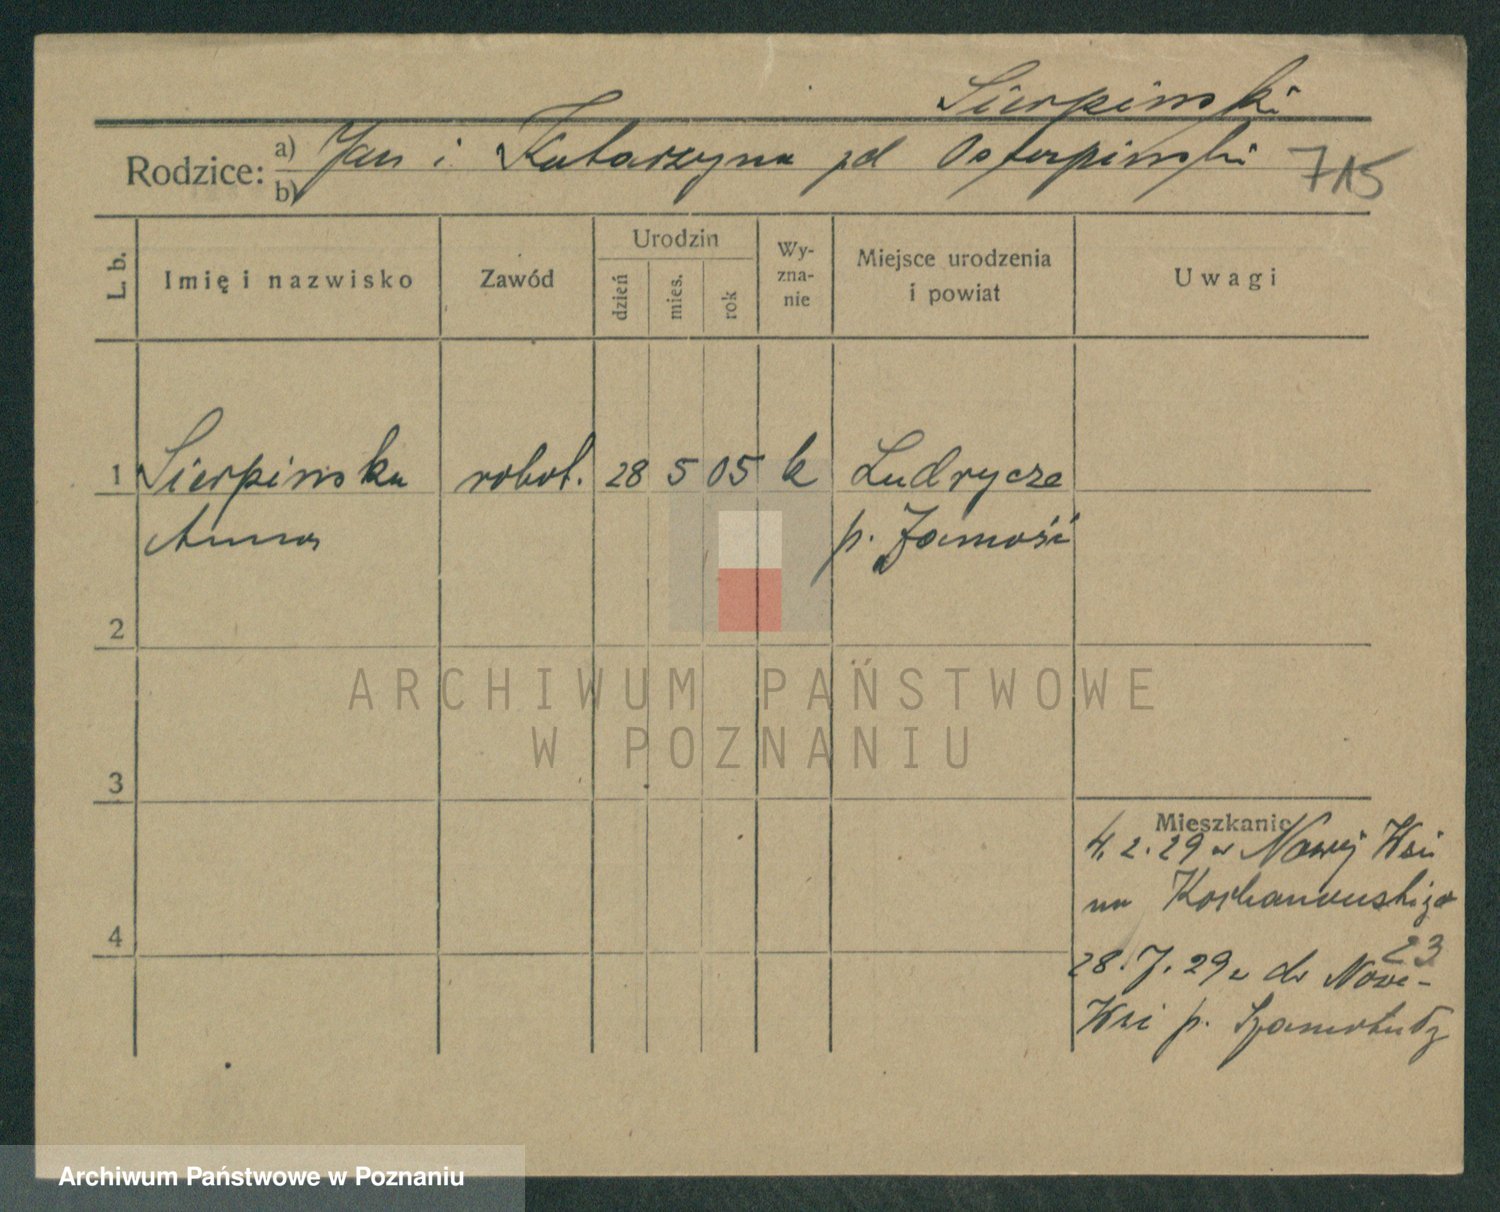 Sierpinski
Rodzice: a) Jan i Katarzyna zd Osterpinski 715
b)
L. b. Imię i nazwisko Zawód Urodzin dzień mies. rok Wy-zna-nie Miejsce urodzenia i powiat Uwagi
1 Sierpinska robot. 28 5 05 k Ludrycze
Anna p. Zamość
2
ARCHIWUM PAŃSTWOWE
W POZNANIU
3
Mieszkanie
4. 2. 29 z Nowej Wsi
na Kochanowskiego
23
4
28. 7. 29 do Nowe-
Wsi p. Szamotuły
Archiwum Państwowe w Poznaniu